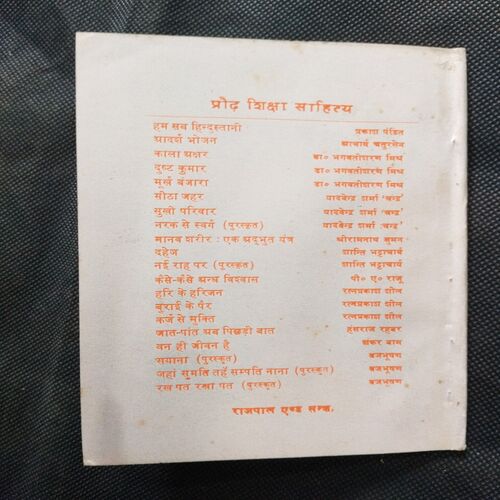 प्रौढ़ शिक्षा साहित्य
हम सब हिन्दुस्तानी प्रकाश पंडित
आदर्श भोजन आचार्य चतुरसेन
काला अक्षर डा० भगवतीशरण मिश्र
दुष्ट कुमार डा० भगवतीशरण मिश्र
मूर्ख बंजारा डा० भगवतीशरण मिश्र
मीठा जहर यादवेन्द्र शर्मा 'चन्द्र'
सुखी परिवार यादवेन्द्र शर्मा 'चन्द्र'
नरक से स्वर्ग (पुरस्कृत) यादवेन्द्र शर्मा 'चन्द्र'
मानव शरीर : एक अद्भुत यंत्र श्रीरामनाथ सुमन
दहेज शान्ति भट्टाचार्य
नई राह पर (पुरस्कृत) शान्ति भट्टाचार्य
कैसे-कैसे अन्ध विश्वास पी० ए० राजू
हरि के हरिजन रत्नप्रकाश शील
बुराई के पैर रत्नप्रकाश शील
कर्ज से मुक्ति रत्नप्रकाश शील
जात-पांत अब पिछड़ी बात हंसराज रहबर
वन ही जीवन है शंकर बाम
सयाना (पुरस्कृत) ब्रजभूषण
जहां सुमति तहँ सम्पति नाना (पुरस्कृत) ब्रजभूषण
रख पत रखा पत (पुरस्कृत) ब्रजभूषण
राजपाल एण्ड सन्ज़